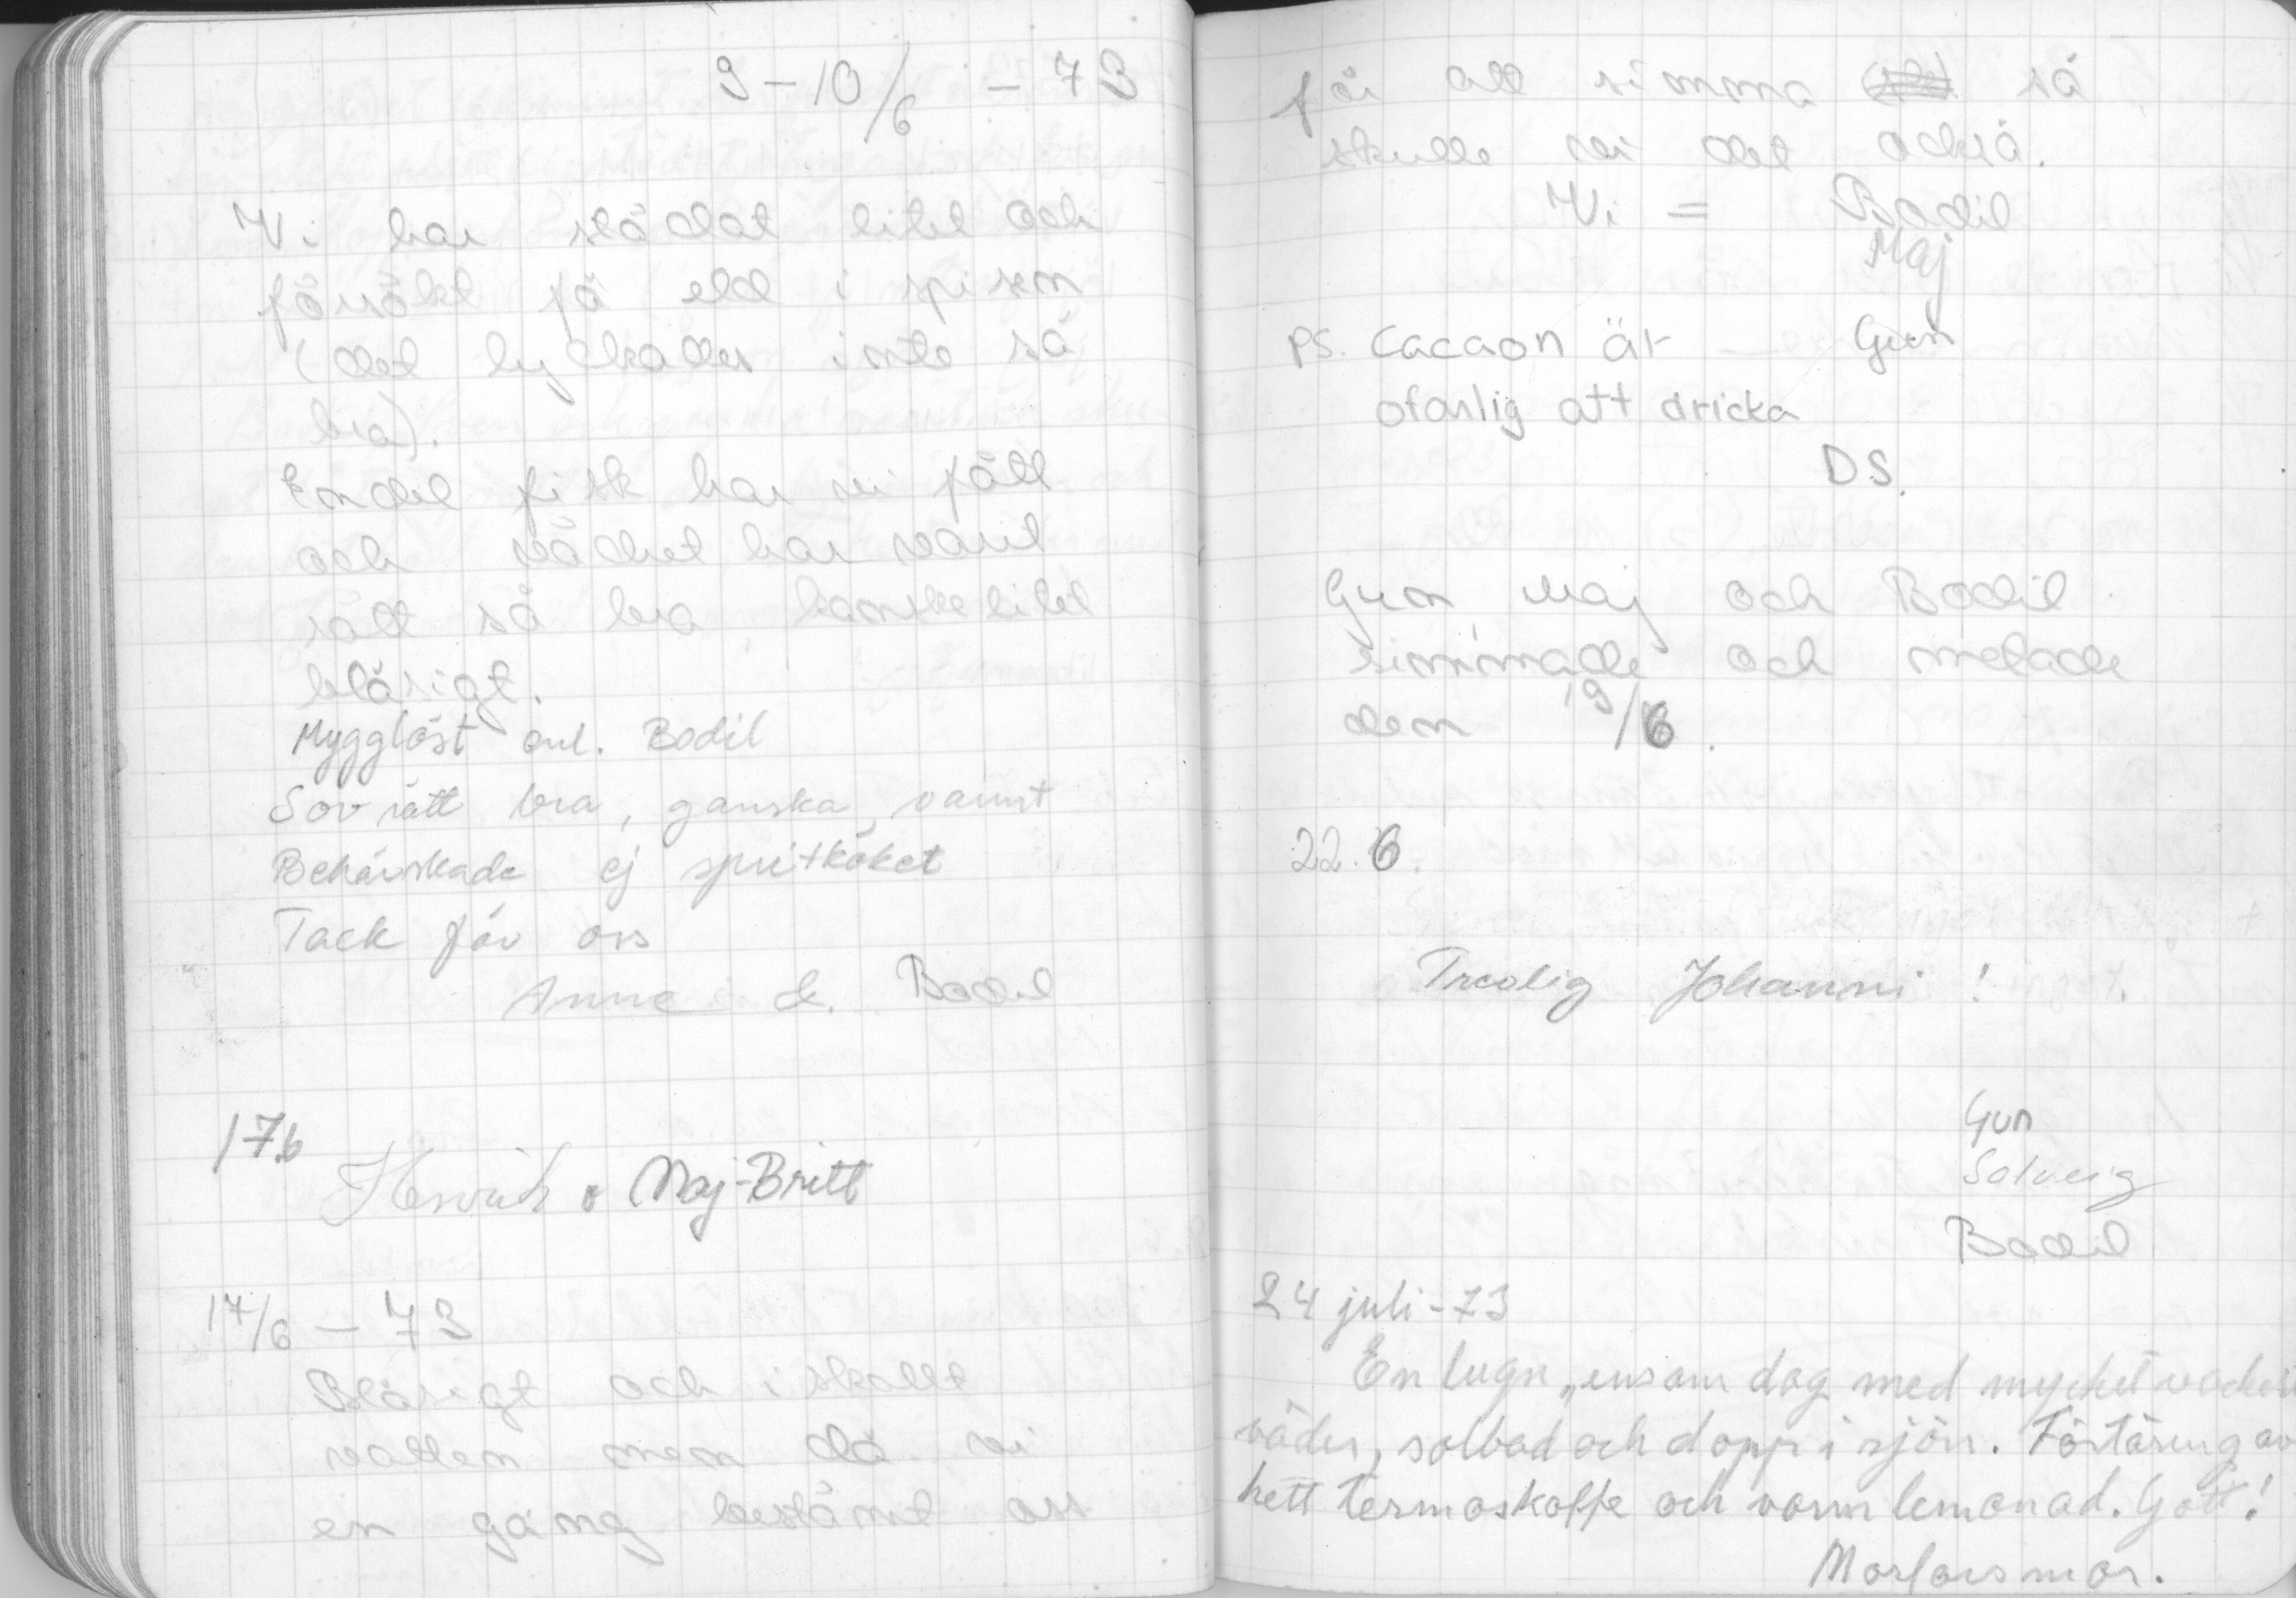 9-10/6 - 73
Vi har städat litet och
försökt få eld i spisen
(det lyckades inte så
bra).
Endel fisk har vi fått
och vädret har varit
rätt så bra, kanske litet
blåsigt.
Mygglöst enl. Bodil
Sov rätt bra, ganska varmt
Behärskade ej spritköket
Tack för oss
Anne & Bodil
17.6
Henrik & Maj-Britt
17/6 - 73
Blåsigt och iskallt
vatten men då vi
en gång bestämt oss
för att simma så
skulle vi det också.
Vi = Bodil
Maj
Gun
PS. Cacaon är
ofarlig att dricka
DS.
Gun, Maj och Bodil
simmade och metade
den 19/6.
22.6.
Trevlig Johanni!
Gun
Solveig
Bodil
24 juli - 73
En lugn, ensam dag med mycket vackert
väder, solbad och dopp i sjön. Förtäring av
hett termoskaffe och varm lemonad. Gott!
Morfars mor.